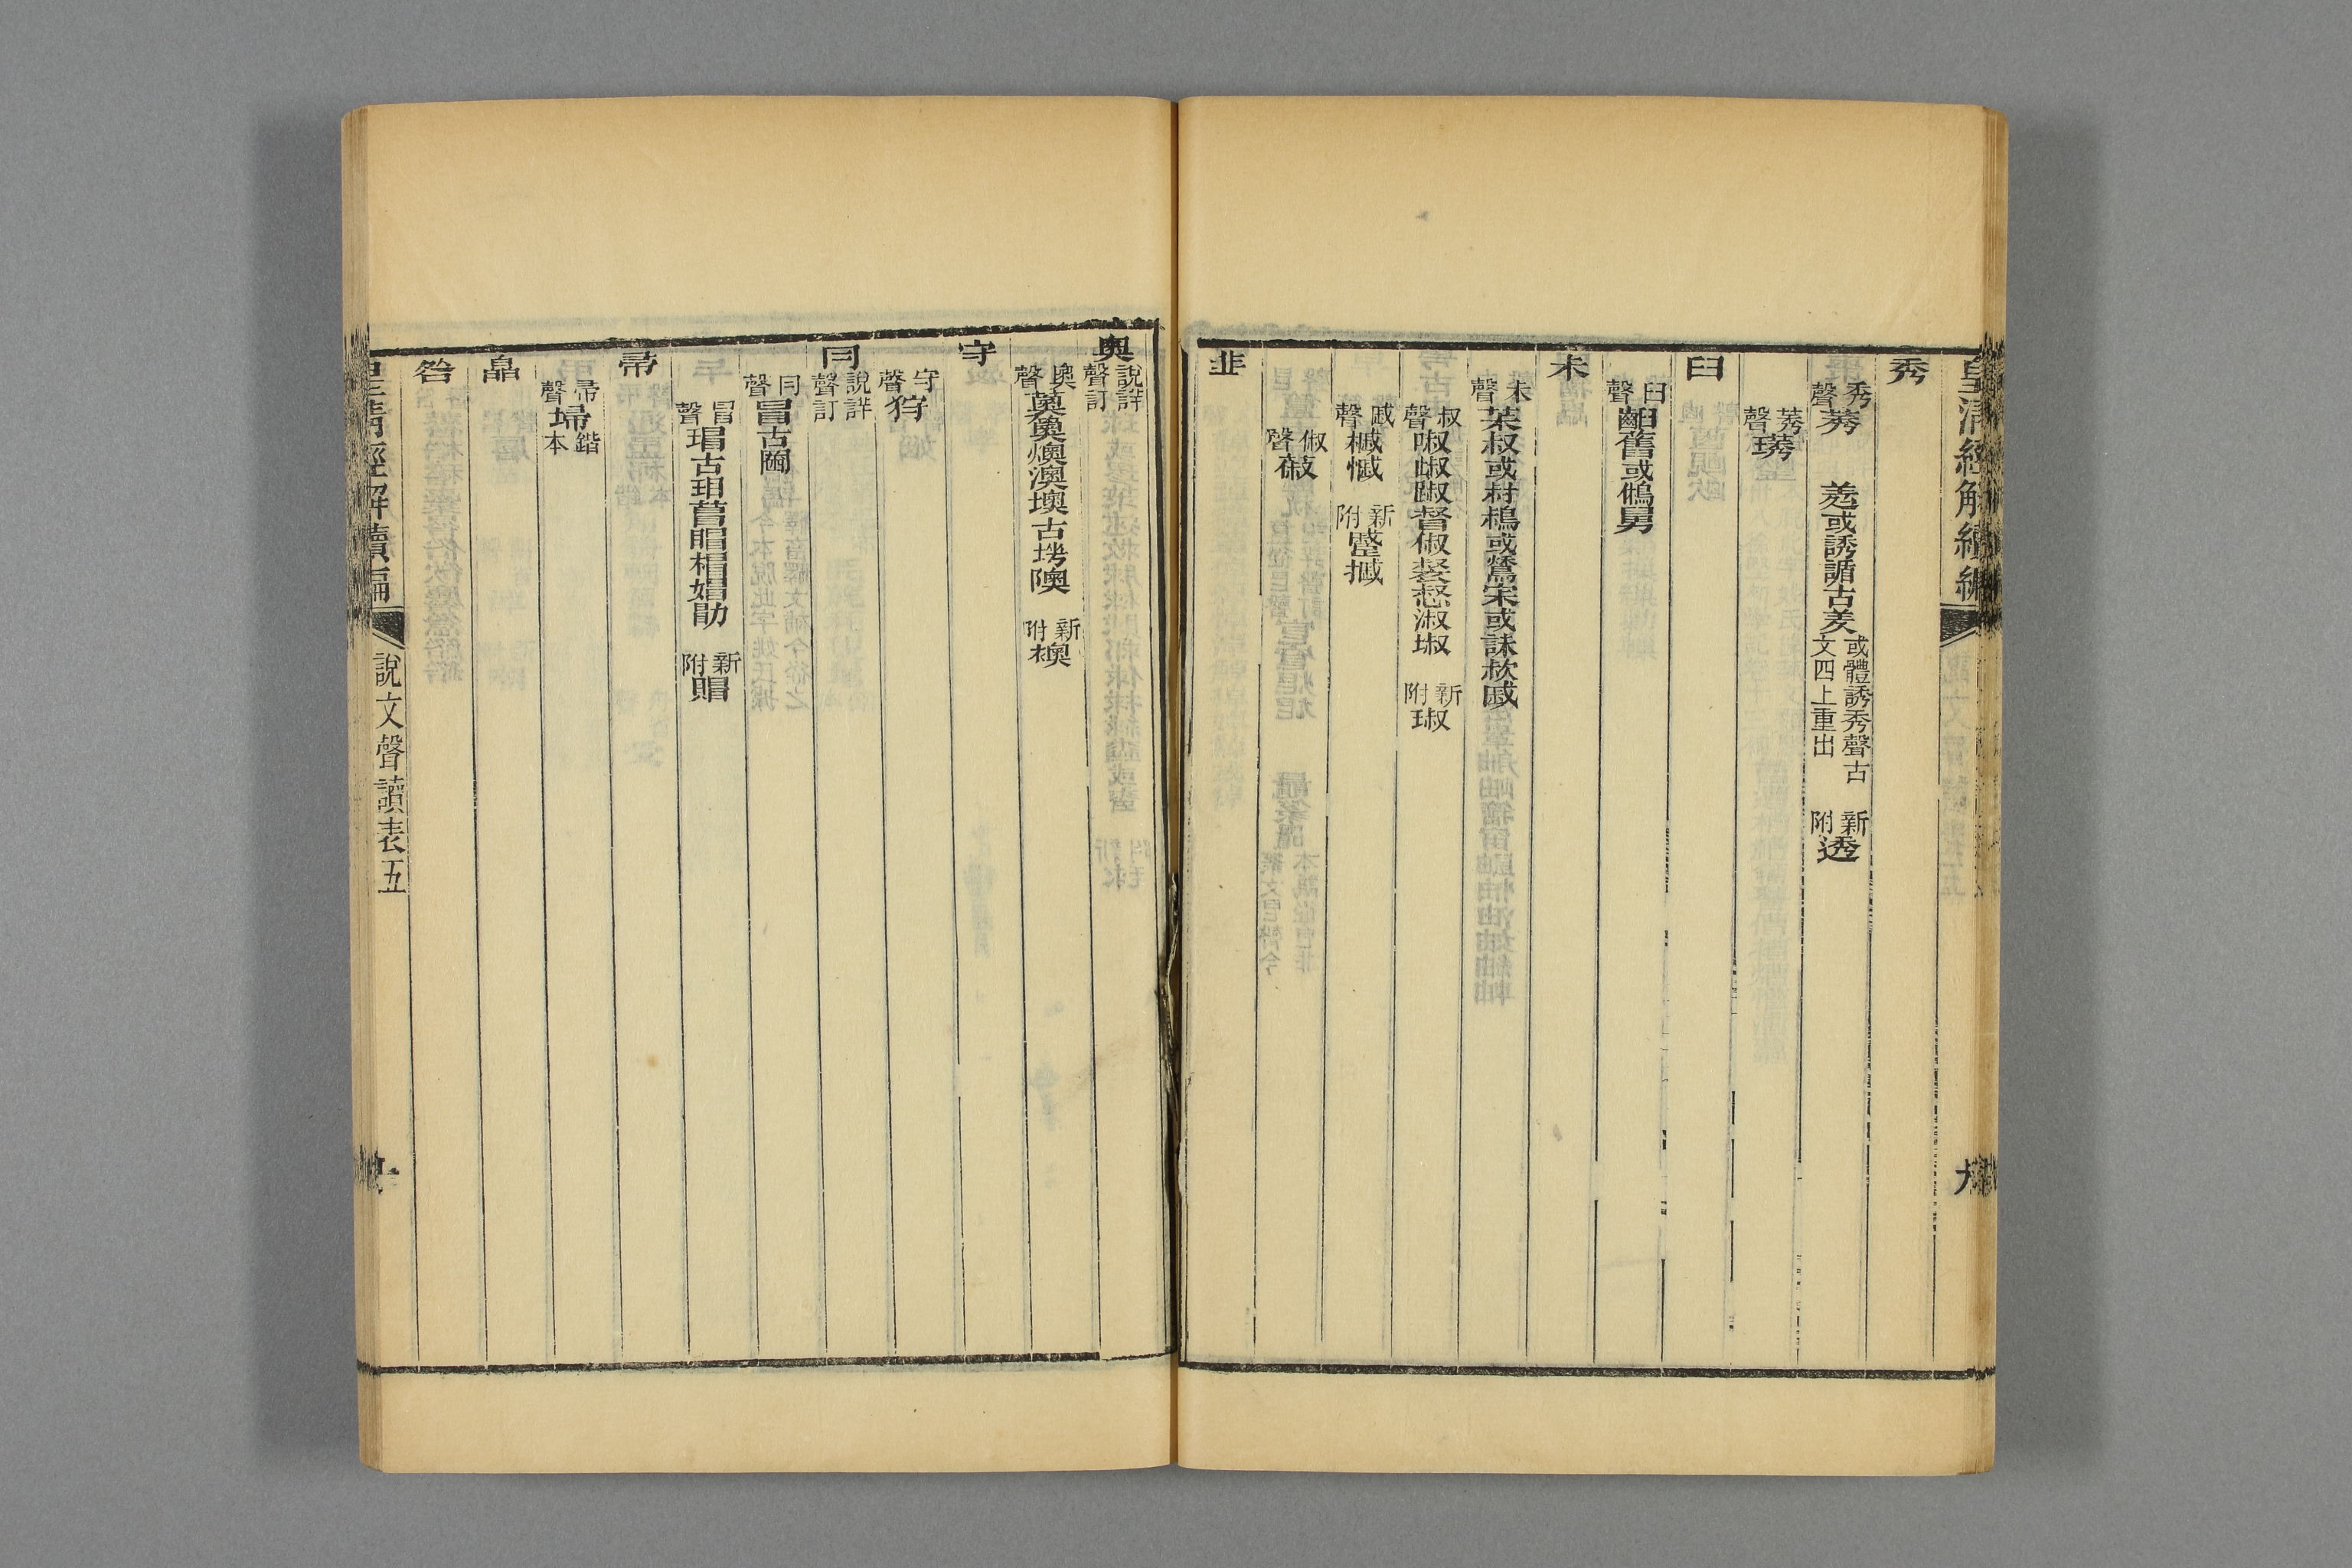 皇清經解續編
秀
秀聲莠 羑或誘䛻古羑或體誘秀聲古文四上重出 新附透
莠聲璓
臼
臼聲齨舊或鵂舅
尗
尗聲茮叔或村槝或䳮宋或誴欶戚
叔聲啾踧督俶裻惄淑埱 新附琡
戚聲槭慽 新附蹙摵
俶聲蔋
韭
奧說詳聲訂
奧聲薁燠澳墺古垗隩 新附襖
守
守聲狩
冃說詳聲訂
冃聲冒古𡇯
冒聲瑁古玥萺睸楣媢勖 新附賵
帚
帚聲埽鍇本
皛
咎
皇清經解續編
說文聲讀表五